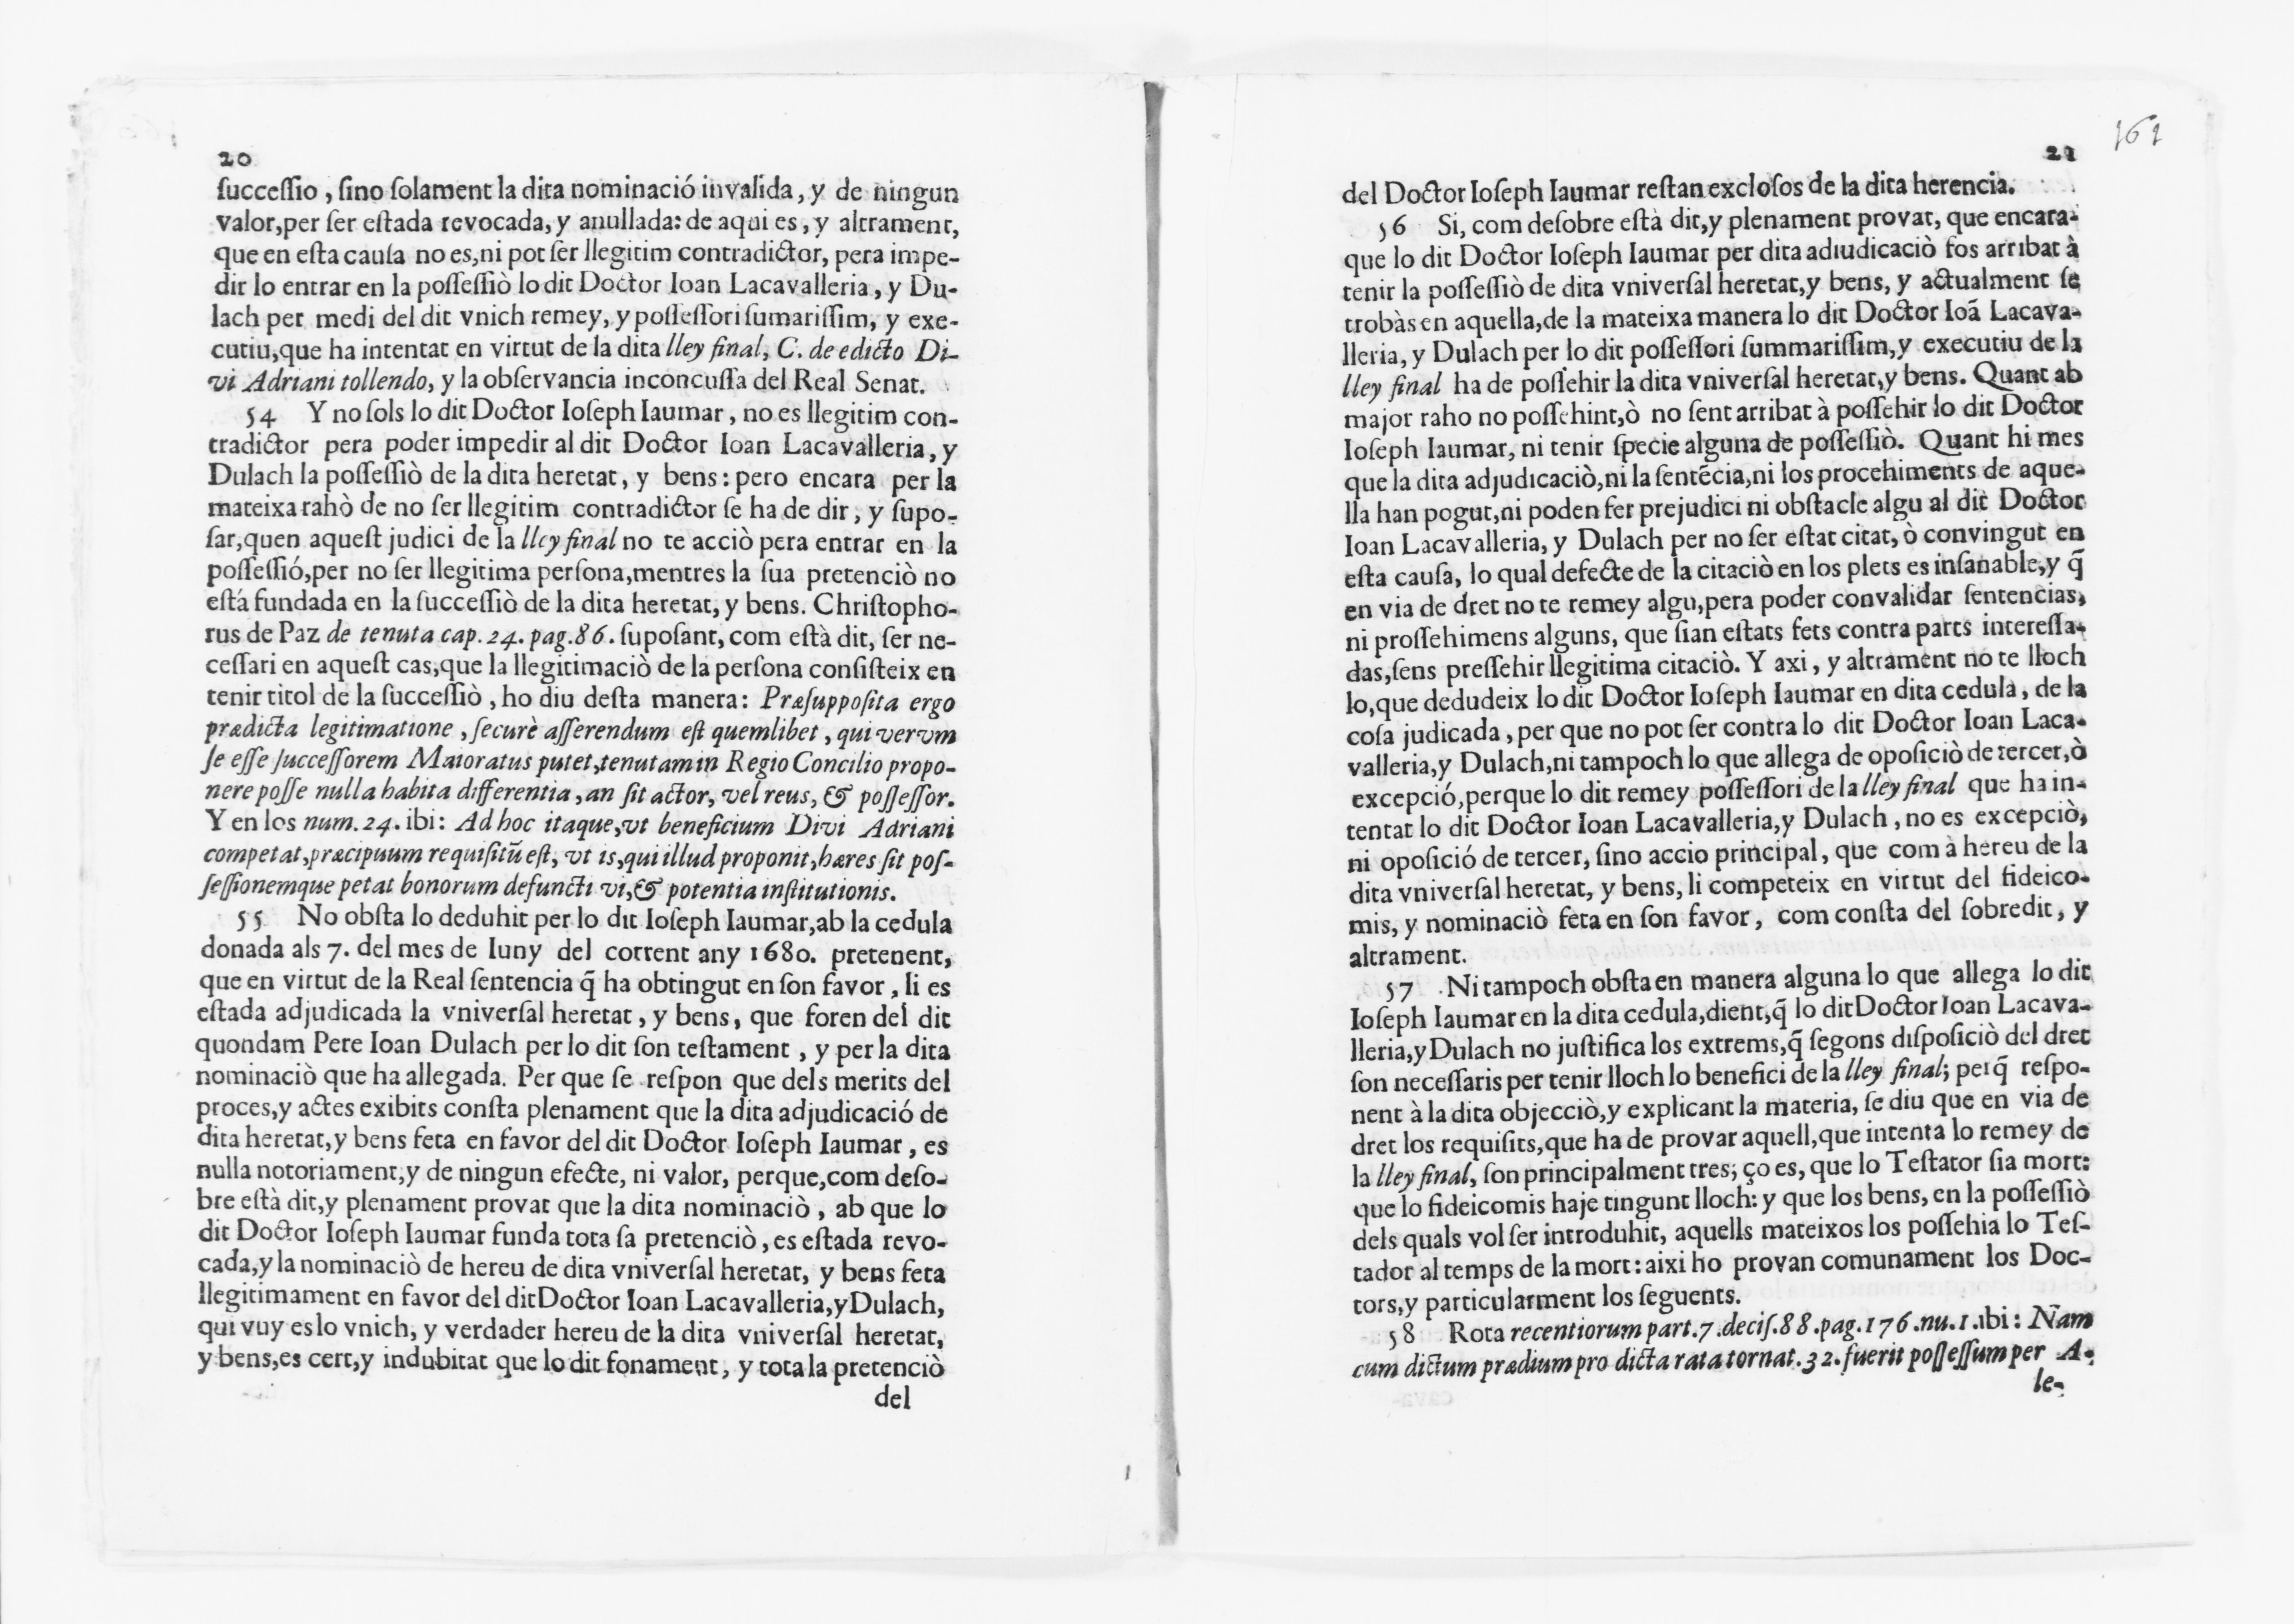 20
ſucceſſio, ſino ſolament la dita nominació invalida, y de ningun
valor, per ſer eſtada revocada, y anullada: de aqui es, y altrament,
que en eſta cauſa no es, ni pot ſer llegitim contradictor, pera impe-
dir lo entrar en la poſſeſſiò lo dit Doctor Ioan Lacavalleria, y Du-
lach per medi del dit vnich remey, y poſſeſſori ſumariſſim, y exe-
cutiu, que ha intentat en virtut de la dita lley final, C. de edicto Di-
vi Adriani tollendo, y la obſervancia inconcuſſa del Real Senat.
54 Y no ſols lo dit Doctor Ioſeph Iaumar, no es llegitim con-
tradictor pera poder impedir al dit Doctor Ioan Lacavalleria, y
Dulach la poſſeſſiò de la dita heretat, y bens: pero encara per la
mateixa rahò de no ſer llegitim contradictor ſe ha de dir, y ſupo-
ſar, quen aqueſt judici de la lley final no te acciò pera entrar en la
poſſeſſió, per no ſer llegitima perſona, mentres la ſua pretenciò no
eſtá fundada en la ſucceſſiò de la dita heretat, y bens. Chriſtopho-
rus de Paz de tenuta cap. 24. pag. 86. ſupoſant, com eſtà dit, ſer ne-
ceſſari en aqueſt cas, que la llegitimaciò de la perſona conſiſteix en
tenir titol de la ſucceſſiò, ho diu deſta manera: Præſuppoſita ergo
prædicta legitimatione, ſecurè aſſerendum eſt quemlibet, qui vervm
ſe eſſe ſucceſſorem Maioratus putet, tenutam in Regio Concilio propo-
nere poſſe nulla habita differentia, an ſit actor, vel reus, & poſſeſſor.
Y en los num. 24. ibi: Ad hoc itaque, vt beneficium Divi Adriani
competat, præcipuum requiſitũ eſt, vt is, qui illud proponit, hæres ſit poſ-
ſeſſionemque petat bonorum defuncti vi, & potentia inſtitutionis.
55 No obſta lo deduhit per lo dit Ioſeph Iaumar, ab la cedula
donada als 7. del mes de Iuny del corrent any 1680. pretenent,
que en virtut de la Real ſentencia q̃ ha obtingut en ſon favor, li es
eſtada adjudicada la vniverſal heretat, y bens, que foren del dit
quondam Pere Ioan Dulach per lo dit ſon teſtament, y per la dita
nominaciò que ha allegada. Per que ſe reſpon que dels merits del
proces, y actes exibits conſta plenament que la dita adjudicació de
dita heretat, y bens feta en favor del dit Doctor Ioſeph Iaumar, es
nulla notoriament, y de ningun efecte, ni valor, perque, com deſo-
bre eſtà dit, y plenament provat que la dita nominaciò, ab que lo
dit Doctor Ioſeph Iaumar funda tota ſa pretenciò, es eſtada revo-
cada, y la nominaciò de hereu de dita vniverſal heretat, y bens feta
llegitimament en favor del dit Doctor Ioan Lacavalleria, y Dulach,
qui vuy es lo vnich, y verdader hereu de la dita vniverſal heretat,
y bens, es cert, y indubitat que lo dit fonament, y tota la pretenciò
del
161
21
del Doctor Ioſeph Iaumar reſtan excloſos de la dita herencia.
56 Si, com deſobre eſtà dit, y plenament provat, que encara-
que lo dit Doctor Ioſeph Iaumar per dita adiudicaciò fos arribat à
tenir la poſſeſſiò de dita vniverſal heretat, y bens, y actualment ſe
trobàs en aquella, de la mateixa manera lo dit Doctor Ioã Lacava-
lleria, y Dulach per lo dit poſſeſſori ſummariſſim, y executiu de la
lley final ha de poſſehir la dita vniverſal heretat, y bens. Quant ab
major raho no poſſehint, ò no ſent arribat à poſſehir lo dit Doctor
Ioſeph Iaumar, ni tenir ſpecie alguna de poſſeſſiò. Quant hi mes
que la dita adjudicaciò, ni la ſentẽcia, ni los procehiments de aque-
lla han pogut, ni poden fer prejudici ni obſtacle algu al dit Doctor
Ioan Lacavalleria, y Dulach per no ſer eſtat citat, ò convingut en
eſta cauſa, lo qual defecte de la citaciò en los plets es inſanable, y q̃
en via de dret no te remey algu, pera poder convalidar ſentencias,
ni proſſehimens alguns, que ſian eſtats fets contra parts intereſſa-
das, ſens preſſehir llegitima citaciò. Y axi, y altrament no te lloch
lo, que dedudeix lo dit Doctor Ioſeph Iaumar en dita cedula, de la
coſa judicada, per que no pot ſer contra lo dit Doctor Ioan Laca-
valleria, y Dulach, ni tampoch lo que allega de opoſiciò de tercer, ò
excepció, perque lo dit remey poſſeſſori de la lley final que ha in-
tentat lo dit Doctor Ioan Lacavalleria, y Dulach, no es excepciò,
ni opoſició de tercer, ſino accio principal, que com à hereu de la
dita vniverſal heretat, y bens, li competeix en virtut del fideico-
mis, y nominaciò feta en ſon favor, com conſta del ſobredit, y
altrament.
57 Ni tampoch obſta en manera alguna lo que allega lo dit
Ioſeph Iaumar en la dita cedula, dient, q̃ lo dit Doctor Ioan Lacava-
lleria, y Dulach no juſtifica los extrems, q̃ ſegons diſpoſiciò del dret
ſon neceſſaris per tenir lloch lo benefici de la lley final; perq̃ reſpo-
nent à la dita objecciò, y explicant la materia, ſe diu que en via de
dret los requiſits, que ha de provar aquell, que intenta lo remey de
la lley final, ſon principalment tres; ço es, que lo Teſtator ſia mort:
que lo fideicomis haje tingunt lloch: y que los bens, en la poſſeſſiò
dels quals vol ſer introduhit, aquells mateixos los poſſehia lo Teſ-
tador al temps de la mort: aixi ho provan comunament los Doc-
tors, y particularment los ſeguents.
58 Rota recentiorum part. 7. deciſ. 88. pag. 176. nu. 1. ibi: Nam
cum dictum prædium pro dicta rata tornat. 32. fuerit poſſeſſum per A-
le-